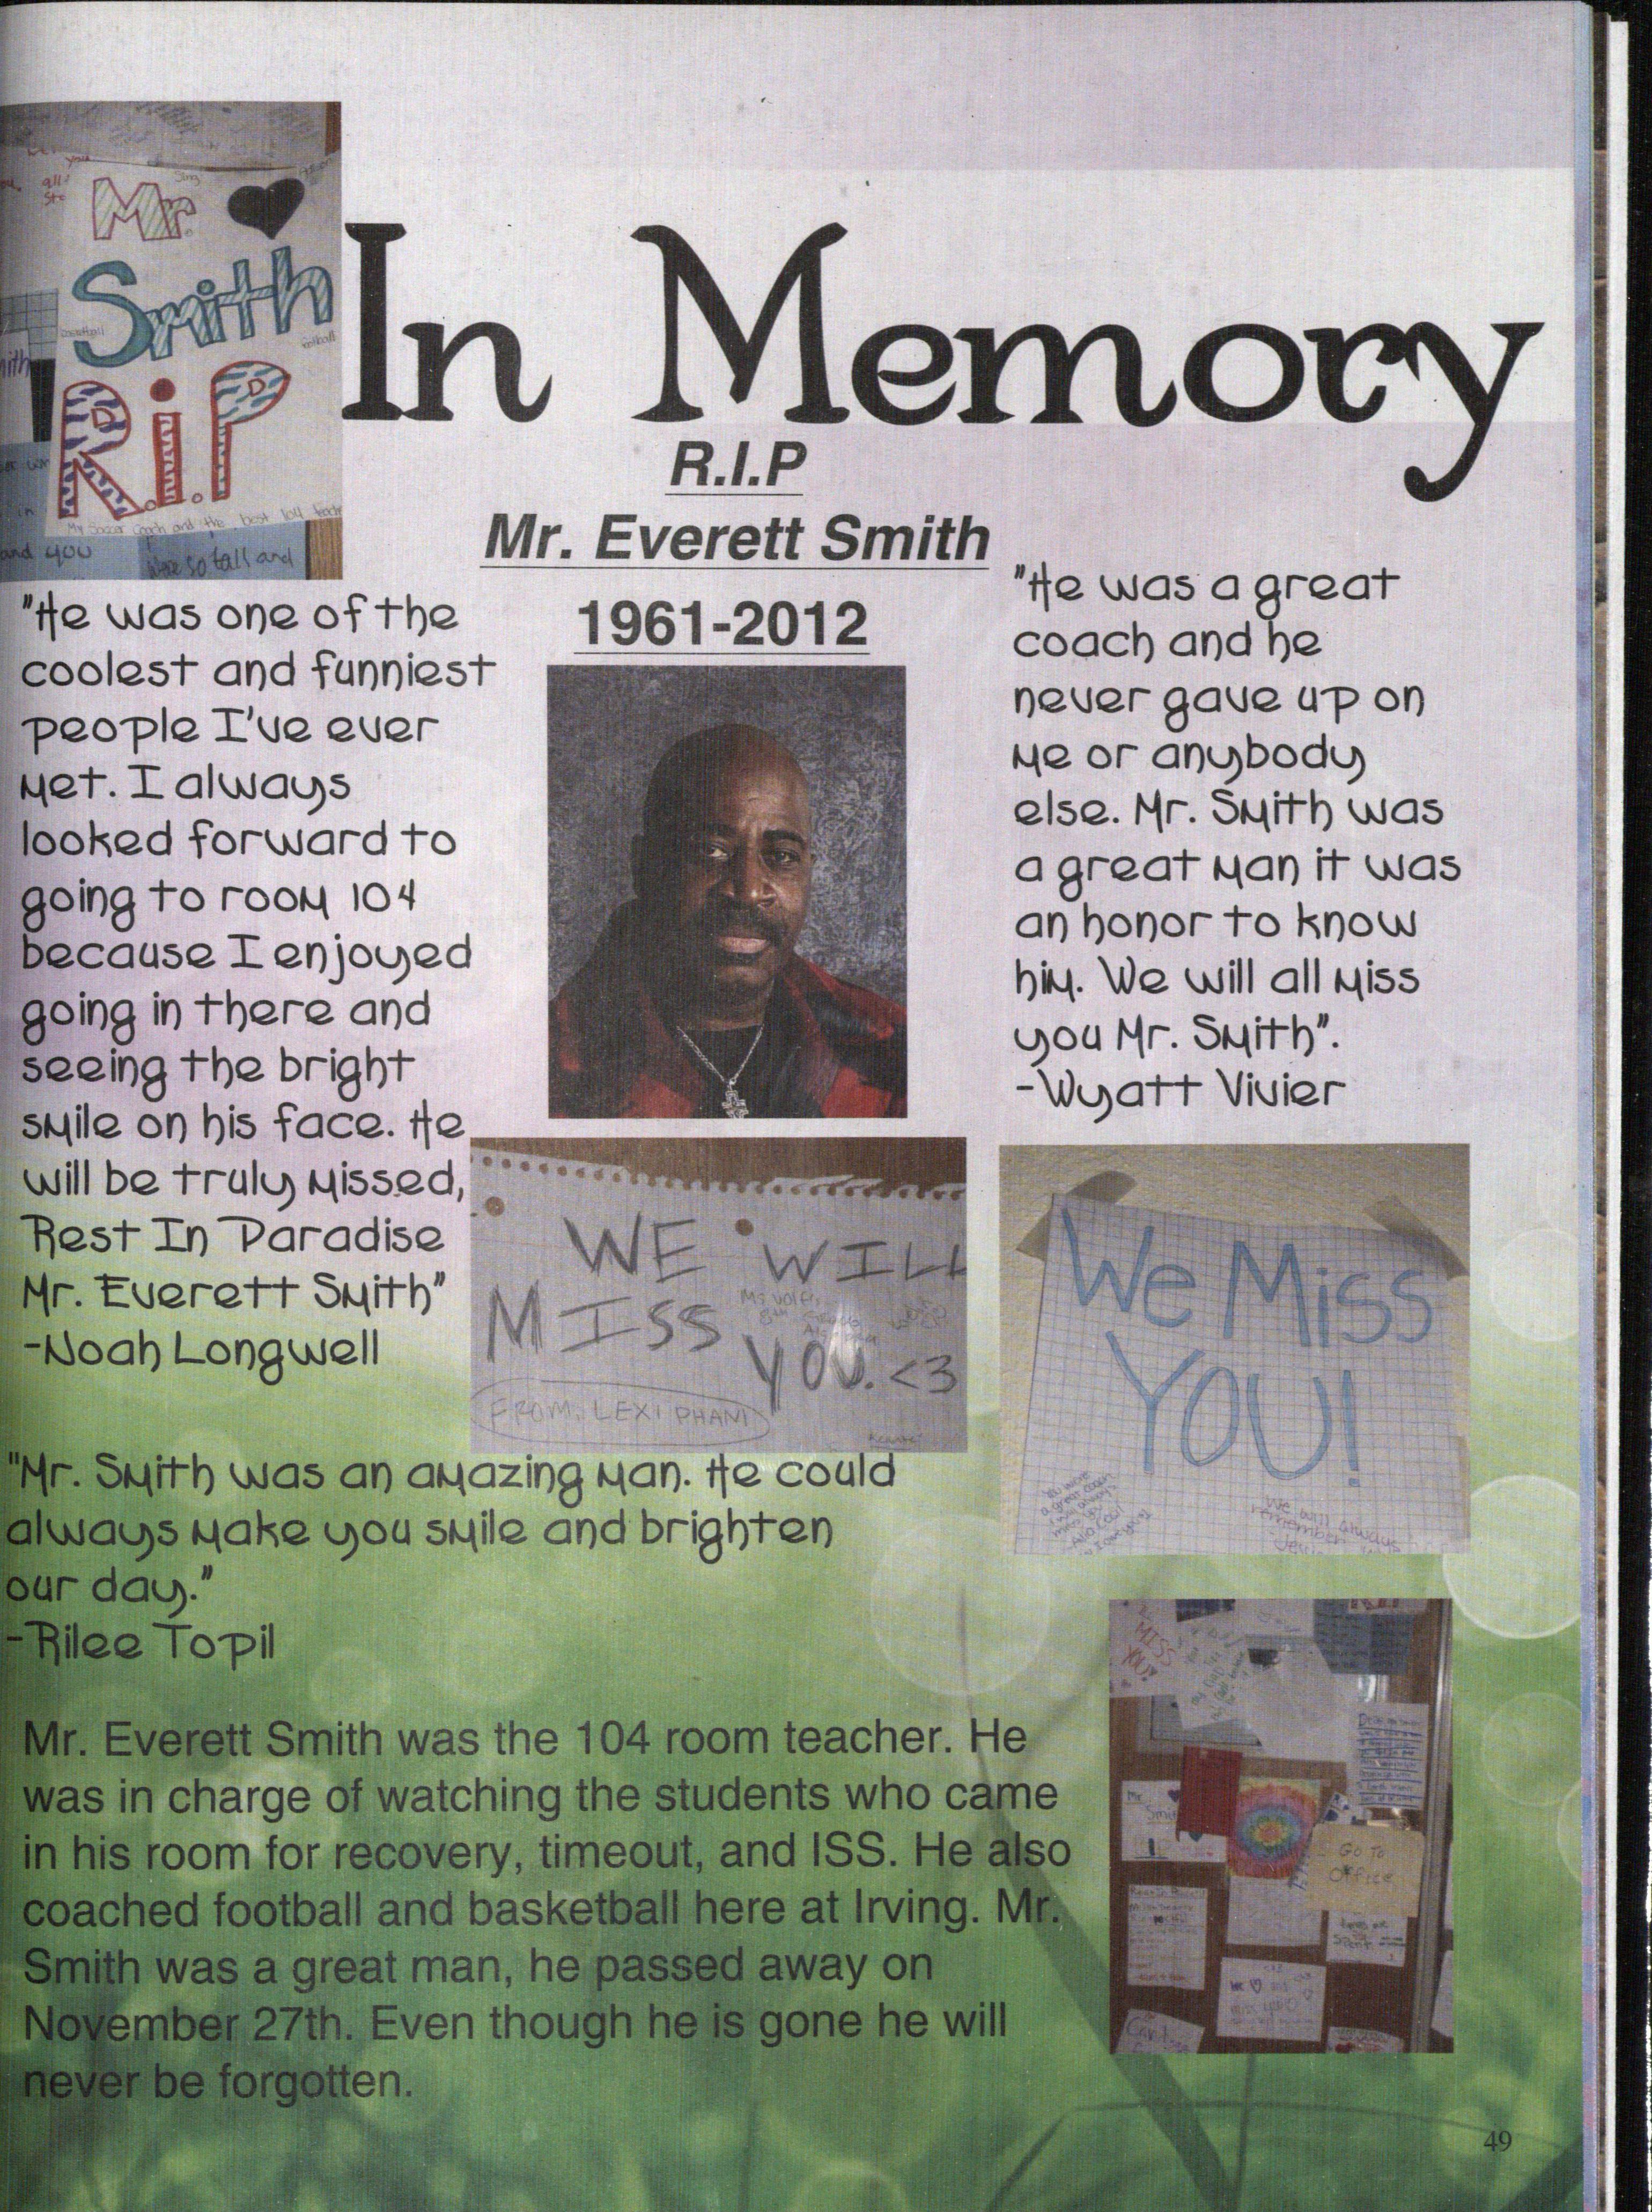 Mr.
Smith
R.i.P
My Soccer Coach and the best 104 teach
and you
were so tall and
In Memory
R.I.P
Mr. Everett Smith
1961-2012
"He was one of the
coolest and funniest
people I've ever
met. I always
looked forward to
going to room 104
because I enjoyed
going in there and
seeing the bright
smile on his face. He
will be truly missed,
Rest In Paradise
Mr. Everett Smith"
-Noah Longwell
"He was a great
coach and he
never gave up on
me or anybody
else. Mr. Smith was
a great man it was
an honor to know
him. We will all miss
you Mr. Smith".
-Wyatt Vivier
WE WILL
MISS
YOU. <3
FROM, LEXI PHANI
We Miss
YOU!
You were
a great coach
I will always
miss you!
We will always
remember
"Mr. Smith was an amazing man. He could
always make you smile and brighten
our day."
-Rilee Topil
MISS
YOU!
Mr.
GO TO
OFFICE
Mr. Everett Smith was the 104 room teacher. He
was in charge of watching the students who came
in his room for recovery, timeout, and ISS. He also
coached football and basketball here at Irving. Mr.
Smith was a great man, he passed away on
November 27th. Even though he is gone he will
never be forgotten.
49